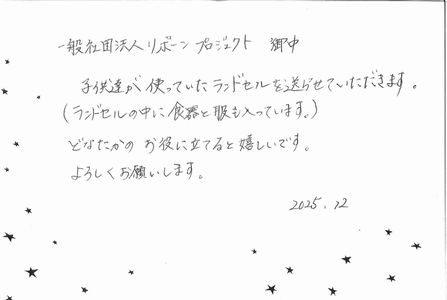 一般社団法人リボーンプロジェクト 御中
子供達が使っていたランドセルを送らせていただきます。
(ランドセルの中に食器と服も入っています。)
どなたかのお役に立てると嬉しいです。
よろしくお願いします。
2025.12